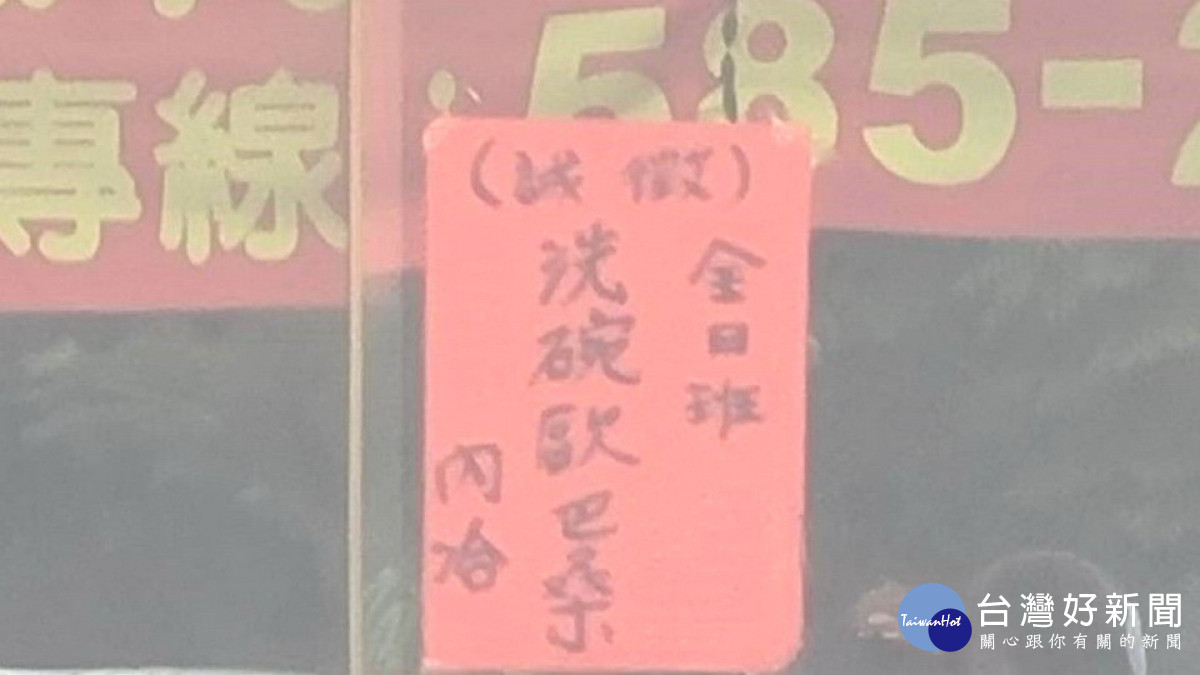 585-2
專線
(誠徵)
全日班
洗碗歐巴桑
內洽
TaiwanHot
台灣好新聞
關心跟你有關的新聞